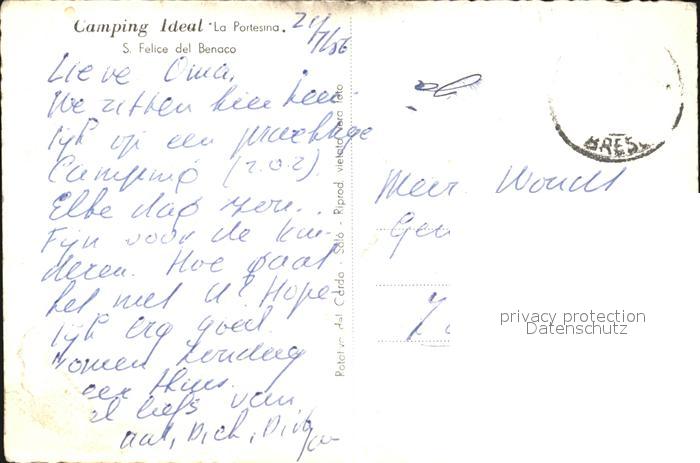 Camping Ideal "La Portesina"
S. Felice del Benaco
21/7/56
Lieve Oma,
We zitten hier heer-
lijk op een prachtige
Camping (z.o.z).
Elke dag zon..
Fijn voor de kin-
deren. Hoe gaat
het met U? Hope-
lijk erg goed.
komen Zondag
weer thuis.
al liefs van
Dick,
Rotatve dal Cardo - Salò - Riprod. vietata vera foto
BRES
Mevr.
privacy protection
Datenschutz